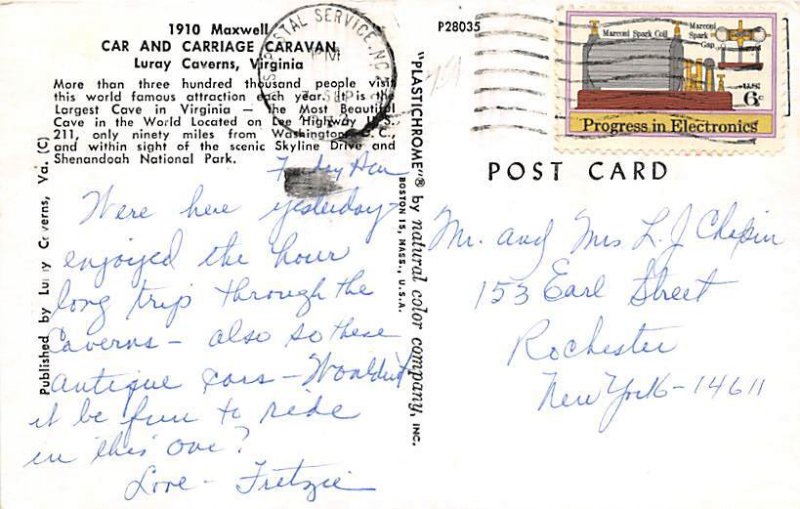 1910 Maxwell
CAR AND CARRIAGE CARAVAN
Luray Caverns, Virginia
More than three hundred thousand people visit
this world famous attraction each year. It is the
Largest Cave in Virginia — the Most Beautiful
Cave in the World Located on Lee Highway U.S.
211, only ninety miles from Washington, D. C.,
and within sight of the scenic Skyline Drive and
Shenandoah National Park.
Published by Luray Caverns, Va. (C)
Friday
Were here yesterday-
enjoyed the hour
long trip through the
Caverns - also so these
antique cars - Wouldn't
it be fun to ride
in this one?
Love - Fritzie
POSTAL SERVICE, NC
PM
"PLASTICHROME"® by natural color company, INC.
BOSTON 15, MASS., U.S.A.
P28035
Marconi Spark Coil
Marconi
Spark
Gap
U.S.
6c
Progress in Electronics
POST CARD
Mr. and Mrs L. J Chapin
153 Earl Street
Rochester
New York - 14611